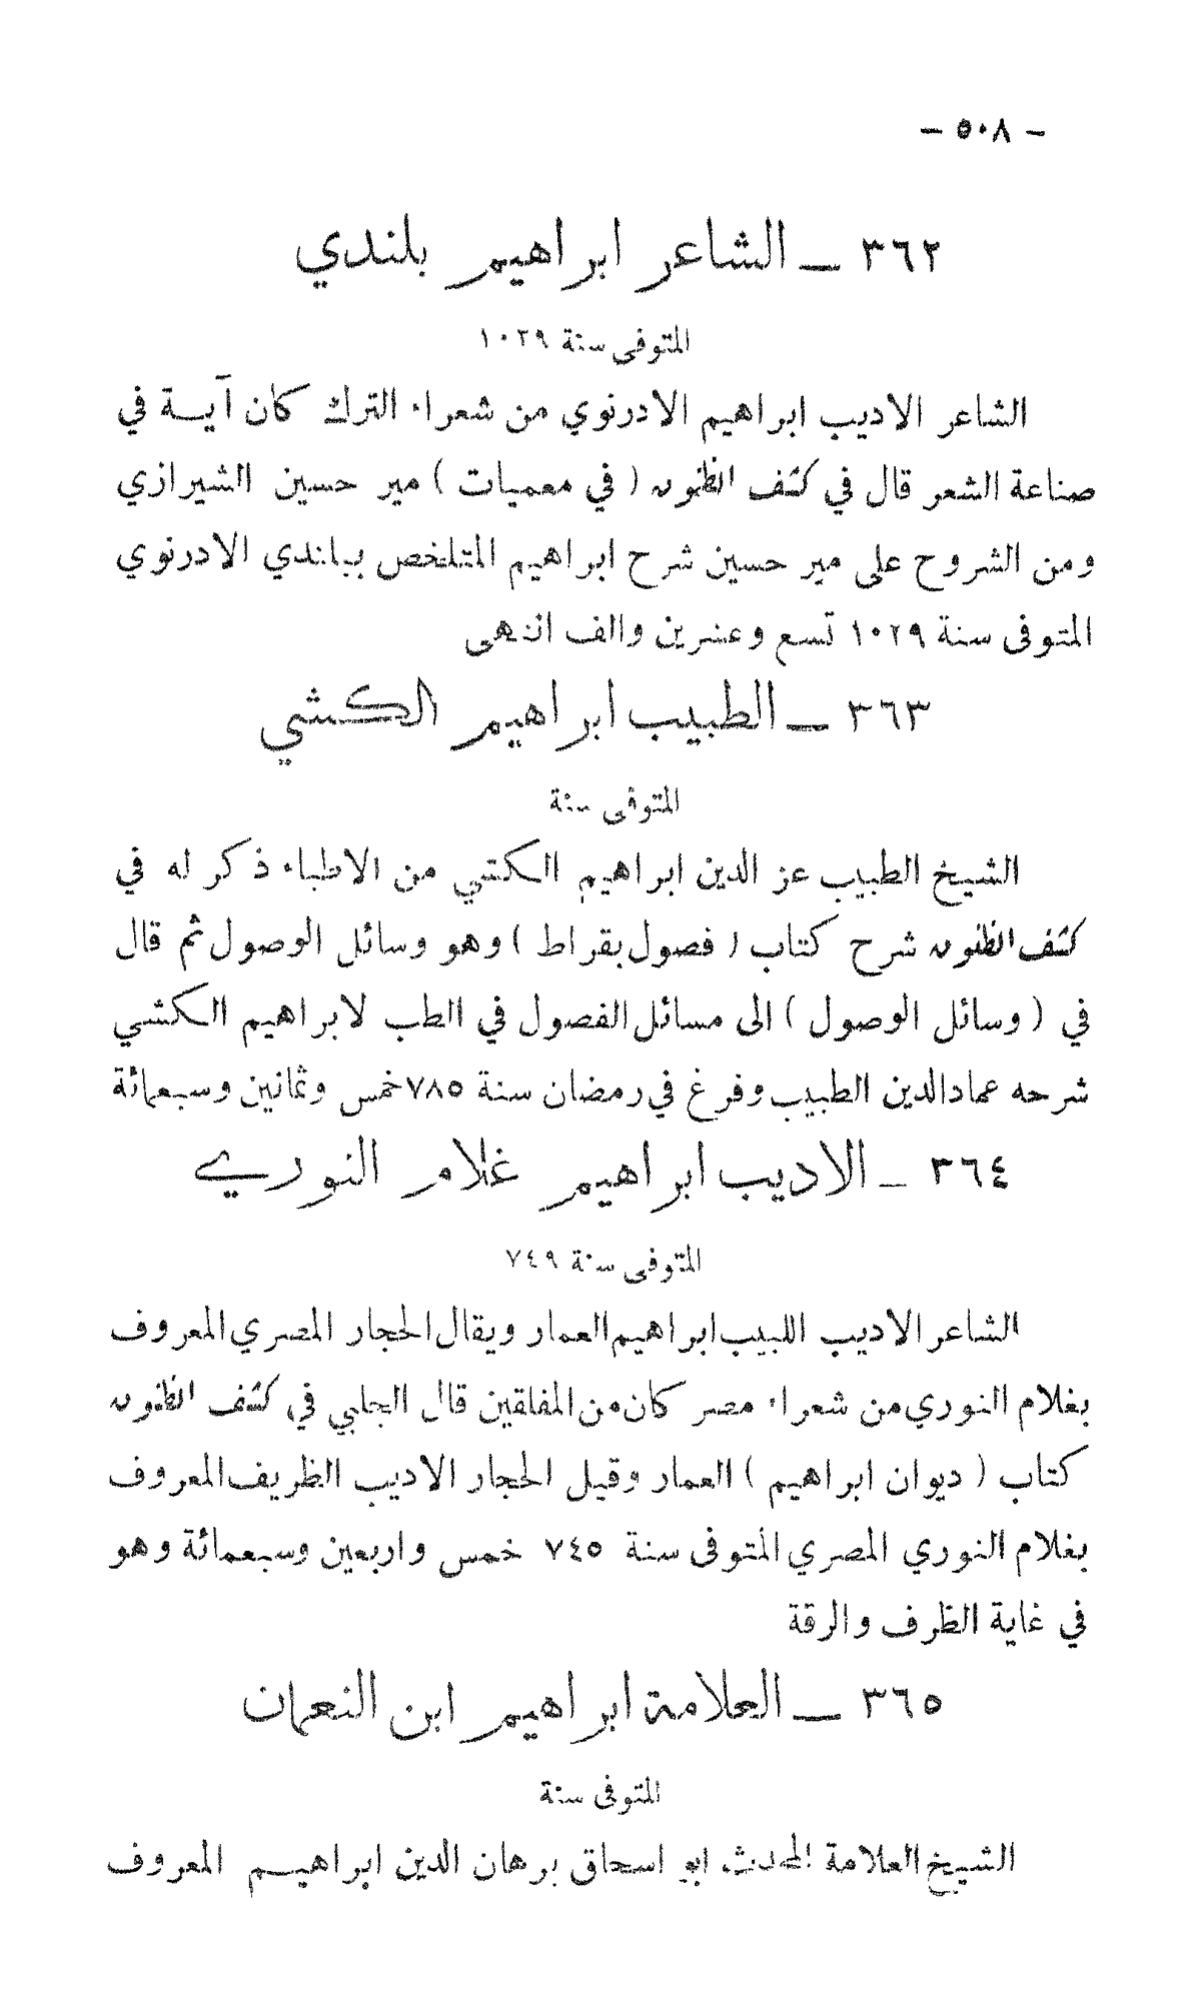 – ٥٠٨ –
٣٦٢ – الشاعر ابراهيم بلندي
المتوفى سنة ١٠٢٩
الشاعر الاديب ابراهيم الادرنوي من شعراء الترك كان آية في
صناعة الشعر قال في كشف الظنون ( في معميات ) مير حسين الشيرازي
ومن الشروح على مير حسين شرح ابراهيم المتلخص ببلندي الادرنوي
المتوفى سنة ١٠٢٩ تسع وعشرين والف انتهى
٣٦٣ – الطبيب ابراهيم الكشي
المتوفى سنة
الشيخ الطبيب عز الدين ابراهيم الكشي من الاطباء ذكر له في
كشف الظنون شرح كتاب ( فصول بقراط ) وهو وسائل الوصول ثم قال
في ( وسائل الوصول ) الى مسائل الفصول في الطب لابراهيم الكشي
شرحه عماد الدين الطبيب وفرغ في رمضان سنة ٧٨٥ خمس وثمانين وسبعمائة
٣٦٤ – الاديب ابراهيم غلام النوري
المتوفى سنة ٧٤٩
الشاعر الاديب اللبيب ابراهيم العمار ويقال الحجار المصري المعروف
بغلام النوري من شعراء مصر كان من المفلقين قال الجلبي في كشف الظنون
كتاب ( ديوان ابراهيم ) العمار وقيل الحجار الاديب الظريف المعروف
بغلام النوري المصري المتوفى سنة ٧٤٥ خمس واربعين وسبعمائة وهو
في غاية الظرف والرقة
٣٦٥ – العلامة ابراهيم ابن النعمان
المتوفى سنة
الشيخ العلامة المحدث ابو اسحاق برهان الدين ابراهيم المعروف